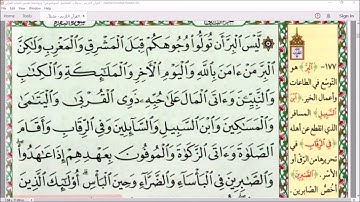 لَّيْسَ ٱلْبِرَّ أَن تُوَلُّوا۟ وُجُوهَكُمْ قِبَلَ ٱلْمَشْرِقِ وَٱلْمَغْرِبِ وَلَٰكِنَّ
ٱلْبِرَّ مَنْ ءَامَنَ بِٱللَّهِ وَٱلْيَوْمِ ٱلْءَاخِرِ وَٱلْمَلَٰٓئِكَةِ وَٱلْكِتَٰبِ
وَٱلنَّبِيِّۦنَ وَءَاتَى ٱلْمَالَ عَلَىٰ حُبِّهِۦ ذَوِى ٱلْقُرْبَىٰ وَٱلْيَتَٰمَىٰ
وَٱلْمَسَٰكِينَ وَٱبْنَ ٱلسَّبِيلِ وَٱلسَّآئِلِينَ وَفِى ٱلرِّقَابِ وَأَقَامَ
ٱلصَّلَوٰةَ وَءَاتَى ٱلزَّكَوٰةَ وَٱلْمُوفُونَ بِعَهْدِهِمْ إِذَا عَٰهَدُوا۟ۖ
وَٱلصَّٰبِرِينَ فِى ٱلْبَأْسَآءِ وَٱلضَّرَّآءِ وَحِينَ ٱلْبَأْسِۗ أُو۟لَٰٓئِكَ ٱلَّذِينَ
١٧٧- ﴿ٱلْبِرَّ﴾ هو
التوسع في الطاعات
وأعمال الخير، ﴿ابن
السبيل﴾ المسافر
الذي انقطع عن أهله
﴿في الرقاب﴾ في
تحريرها من الرق أو
الأسر، ﴿الصابرين﴾
أخص الصابرين